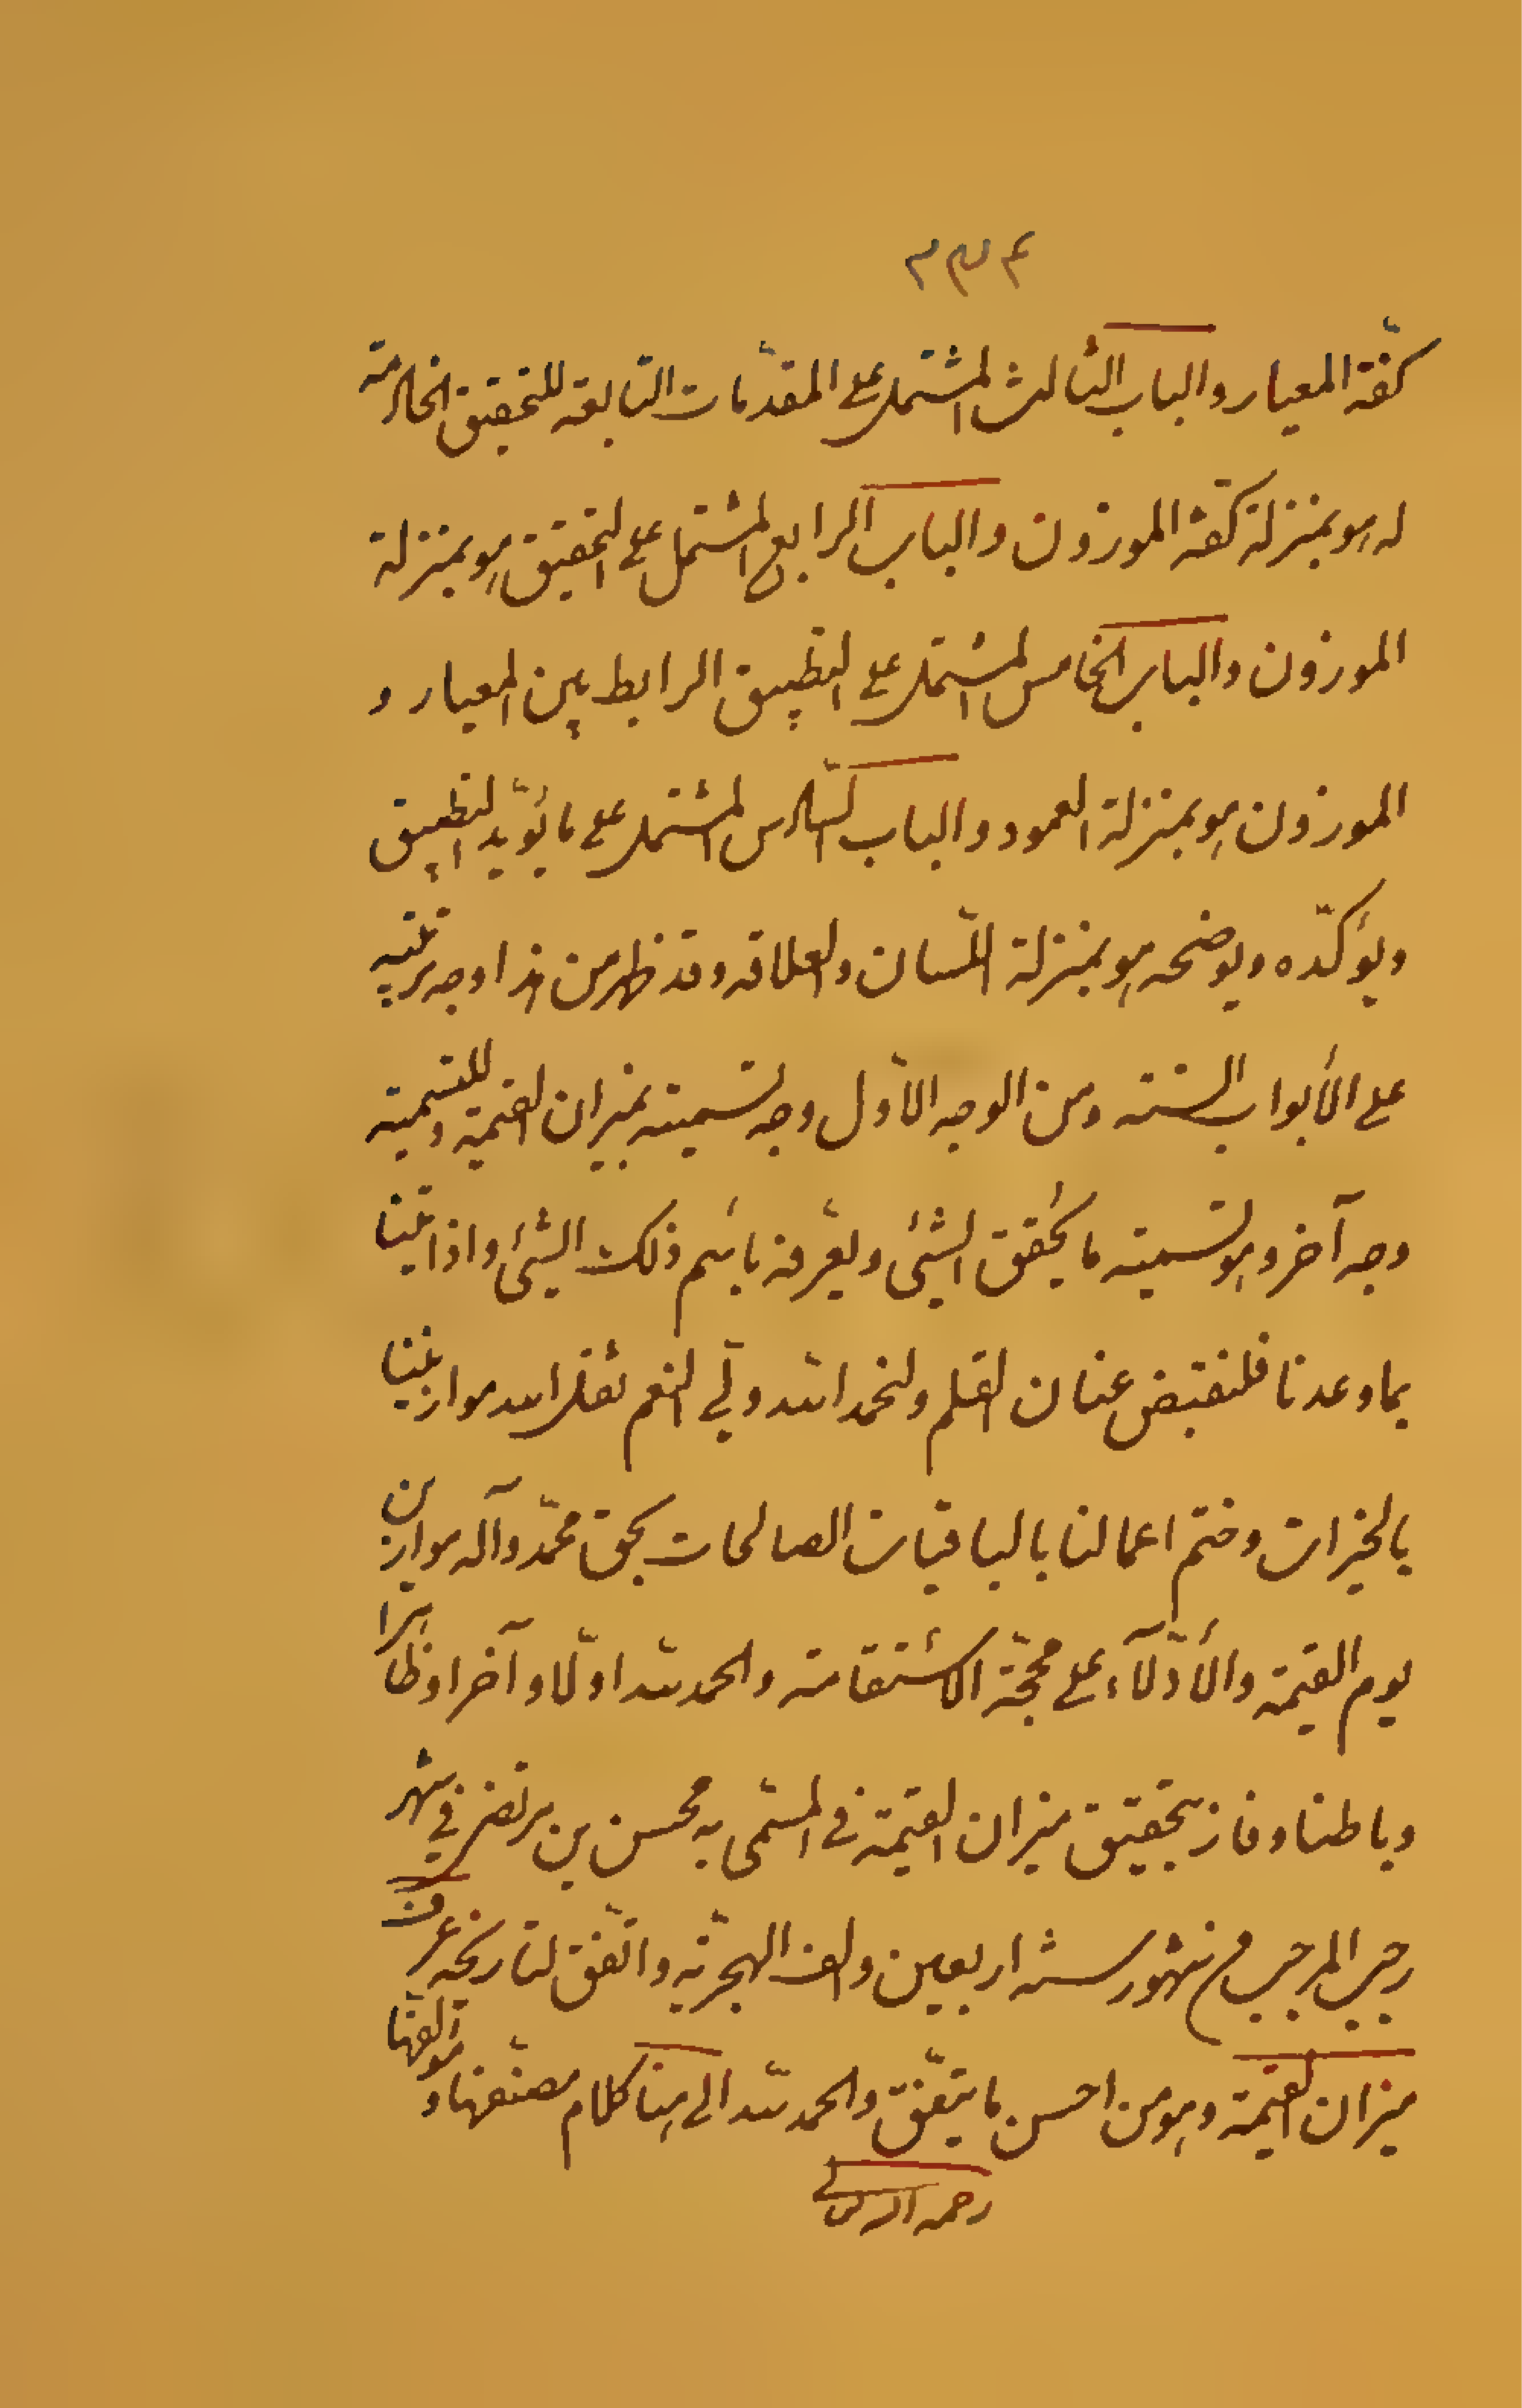 كفّة المعيار والباب الثالث المشتمل على المقدّمات التابعة للتحقيق الخادمة
له هو بمنزلة كفّة الموزون والباب الرابع المشتمل على التحقيق هو بمنزلة
الموزون والباب الخامس المشتمل على التطبيق الرابط بين المعيار و
الموزون هو بمنزلة العمود والباب السّادس المشتمل على ما يؤيّد التطبيق
ويؤكّده ويوضحه هو بمنزلة اللّسان والعلاقه وقد ظهر من هذا وجه ترتيبه
على الأبواب الستة ومن الوجه الأوّل وجه تسميته بميزان القيمة وللتسمية
وجه آخر وهو تسمية ما يحقّق الشئ ويعرّفه باسم ذلك الشئ واذ اتينا
بما وعدنا فلنقبض عنان القلم ولنحمد الله ولي النعم ثقل الله موازيننا
بالخيرات وختم اعمالنا بالباقيات الصالحات بحق محمّد وآله موازين
يوم القيمة والأدّلآء على محجّة الاستقامة والحمد لله اوّلا وآخرا وظاهرا
وباطنا وفاز بتحقيق ميزان القيمة في المسمّى به محسن بن مرتضى في شهر
رجب المرجب من شهور سنة اربعين والف الهجريّة واتّفق لتاريخه عرفت
ميزان القيمة وهو من احسن ما يتّفق والحمد لله الى هنا كلام مصنّفها و مؤلّفها
رحمه الله تعالى